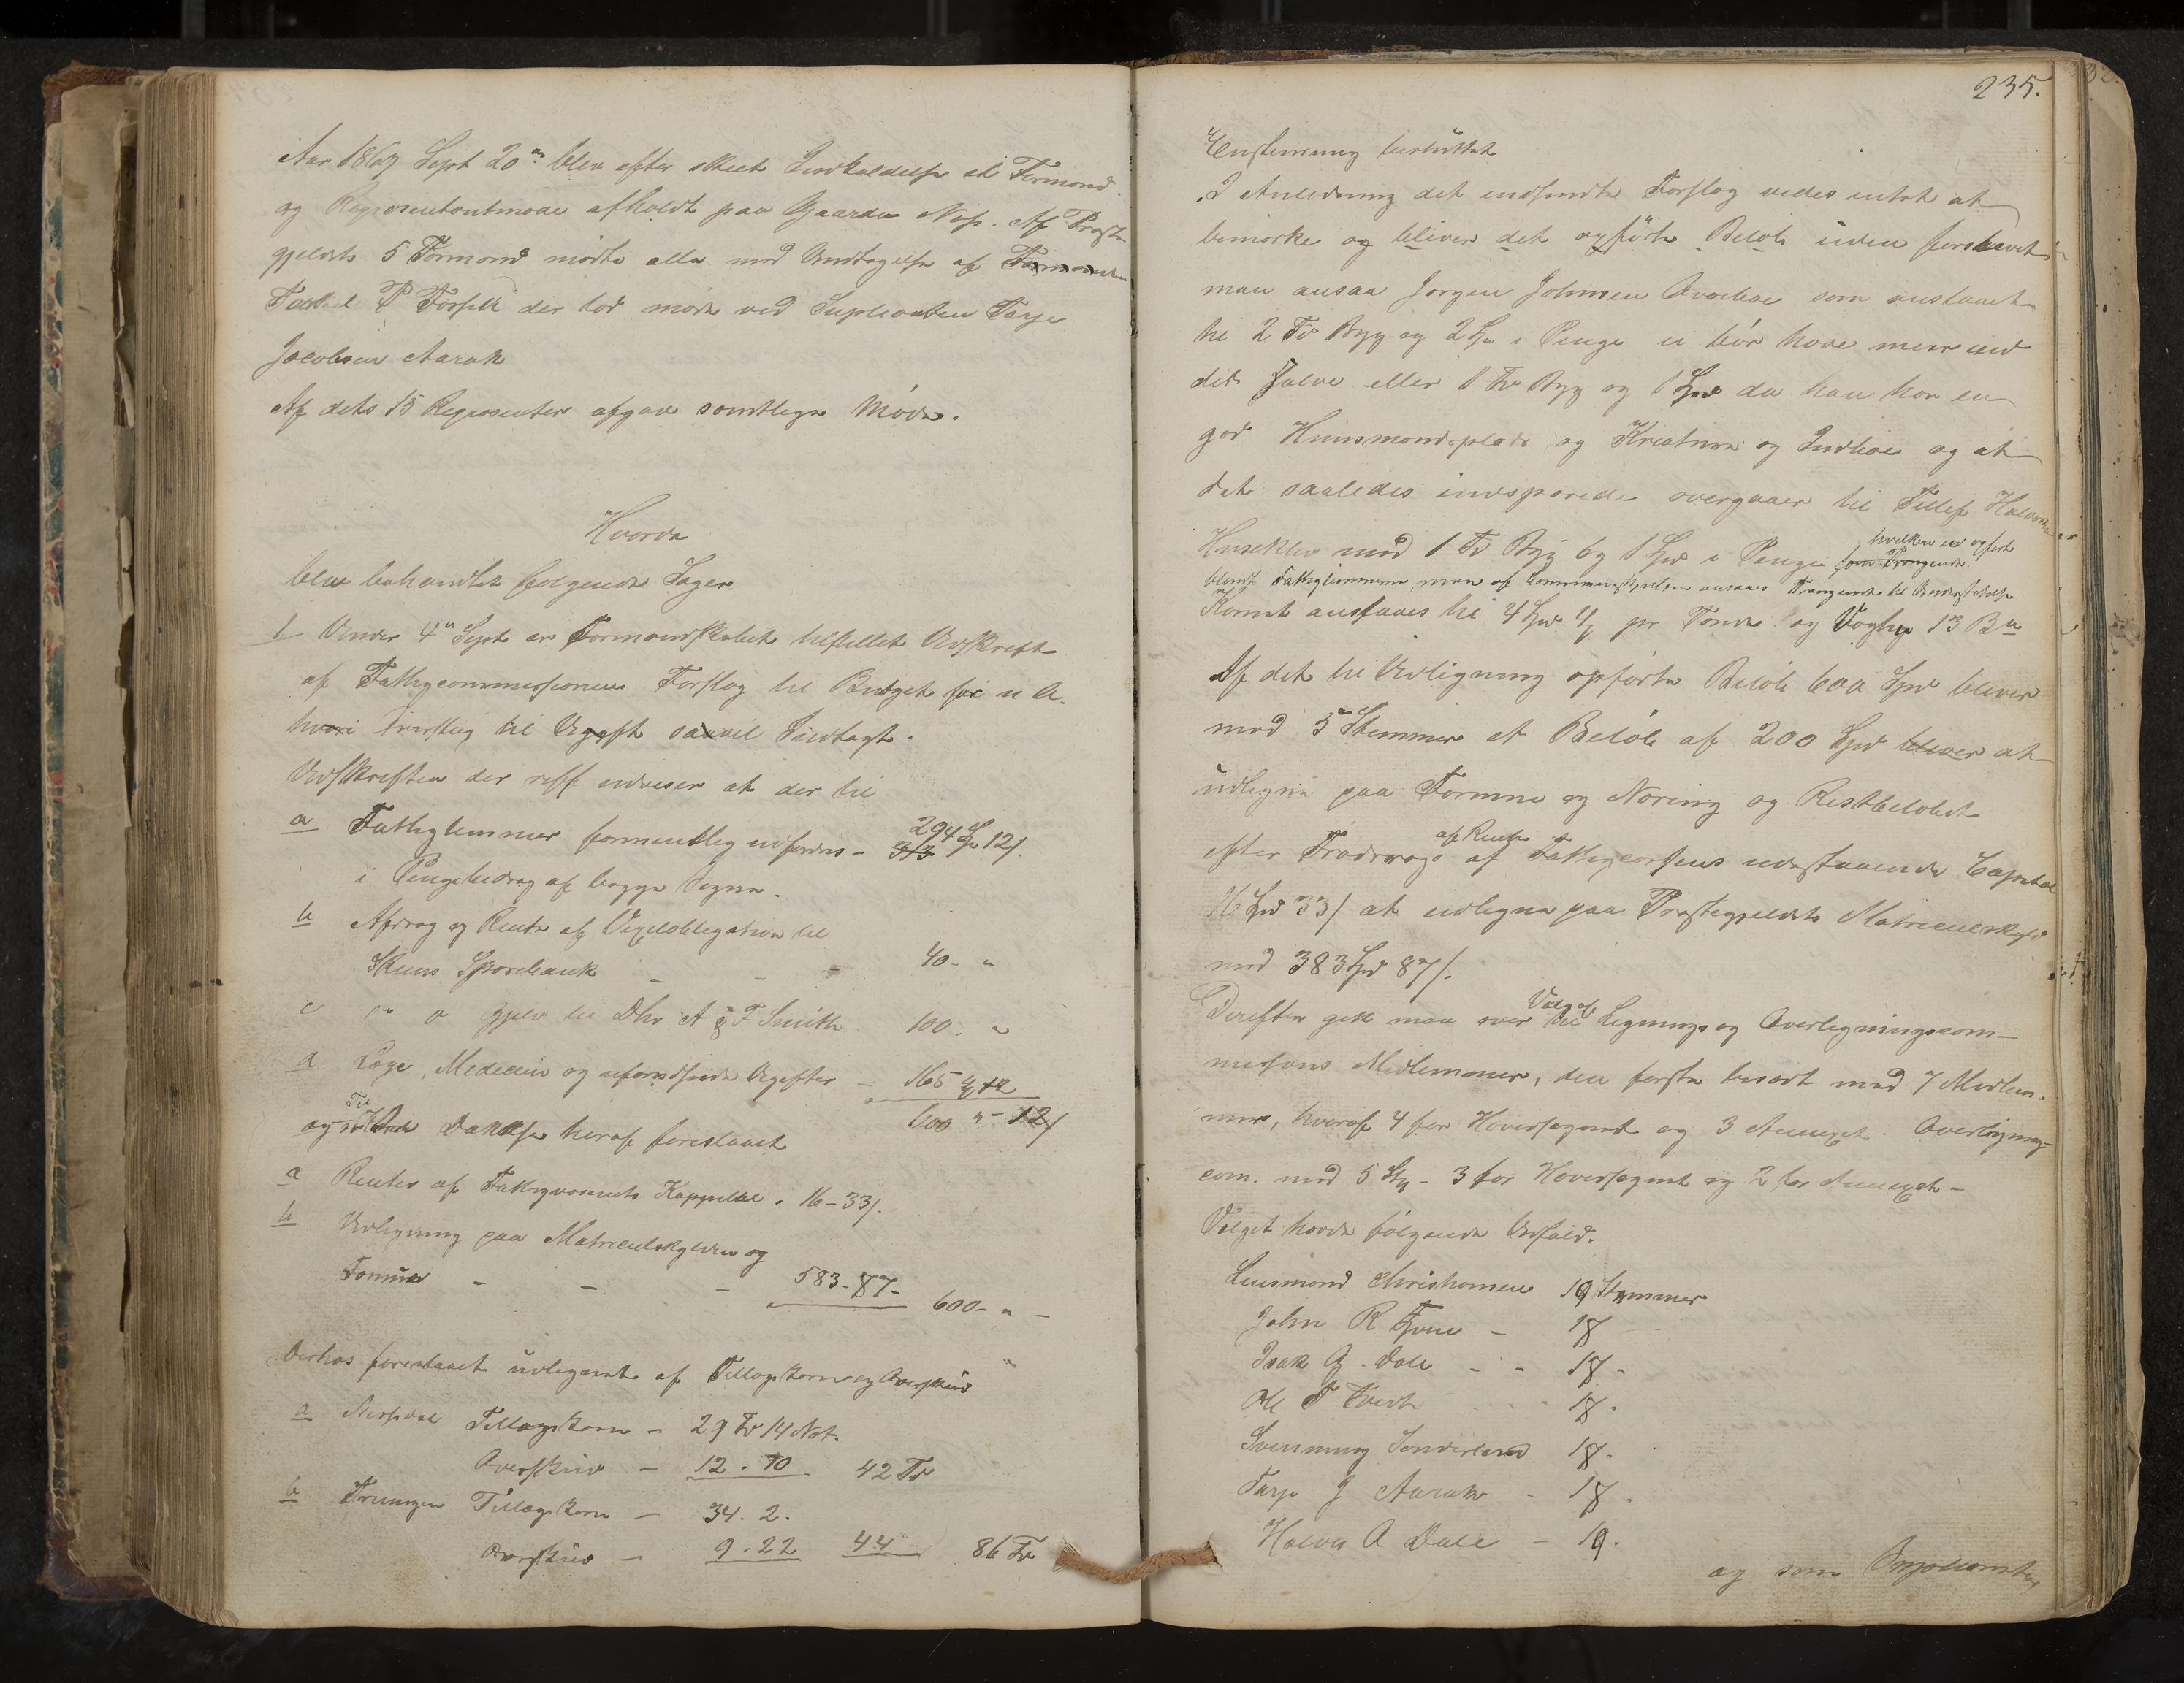 Aar 1869 Sept 20de blev efter skeet Indkaldelse et Formand
og Representantmøde afholdt paa Gaarden Næs. Af Præste
gjeldets 5 Formænd mødte alle med Undtagelse af
der lod møde ved Suplianten Tarje
Jacobsen Aarak
Af dets 15 Representer afgav samtlige Møde.
Hvorda
blev behandlet følgende Sager
1 Under 4de Sept er Formandskabet tilstillet Udskrift
af Fattigcommissionens Forslag til Budget for
hvori Forslag til Udgift saavel Indtægt.
Udskriften der udviser at der til
a Fattiglemmer formentlig udfordres - 294 Sp 12/.
i Pengebidrag af begge Sogne.
b Afdrag og Renter af Vexelobligation til
Sparebank - - - 40 - "
c " " gjeld til Dhr A & F Smith 100. "
d Læge, Medecin og uforudseede Udgifter - 165
og til Dækkelse heraf foreslaaet 600 " - 12/
a Renter af Fattigvæsenets Kappital . 16-33/.
b Udligning paa Matriculskylden og
Formue - - - 583-87- 600 - " -
Derhos foreslaaet udlignet af Tillægskorn og Overskud
a Tillægskorn - 29 Tr 14 Not.
Overskud - 12 . 10 42 Tr
b Tillægskorn - 34. 2.
Overskud - 9.22 44 86 Tr
235.
Enstemmig besluttet
I Anledning det indsendte Forslag vides intet at
bemærke og bliver det opførte Beløb uden forsaavidt
man ansaa Jørgen Johnsen som anslaaet
til 2 Tr Byg og 2 Spd i Penge ei bør have mere end
det halve eller 1 Tr Byg og 1 Spd da han har en
god Huusmandsplads og Kreature og Indboe og at
det saaledes indsparede overgaaer til Tellef Halvorsen
Huseklev med 1 Tr Byg og 1 Spd i Penge hvilken er opført
blandt Fattiglemmerne, men af Commissionen ansaaes Trængende til
Kornet anslaaes til 4 Spd pr Tønde og 13
Af det til Udligning opførte Beløb 600 Spd bliver
mod 5 Stemmer et Beløb af 200 Spd bliver at
udligne paa Formue og Næring og Restbeløbet
efter Fradrag af Renter af Fattigcassens udestaaende Capital
16 Spd 33/ at udligne paa Præstegjeldets Matriculskyld
med 383 Spd 87/.
Derefter gik man over til Valg af Lignings og Overligningscom-
misions Medlemmer, den første besat med 7 Medlem-
mer, hvoraf 4 for Hovedsognet og 3 Annexet. Overlignings
com. med 5 Stk - 3 for Hovedsognet og 2 for Annexet -
Valget havde følgende Udfald.
Lensmand Christensen 19 Stemmer
John R - 18
Isak G. Dale - - 18 -
Ole T - - 18.
Svenning Sønderland 18.
Tarje J Aarak - 18.
Halvor A Dale - 19.
og som Suplianter